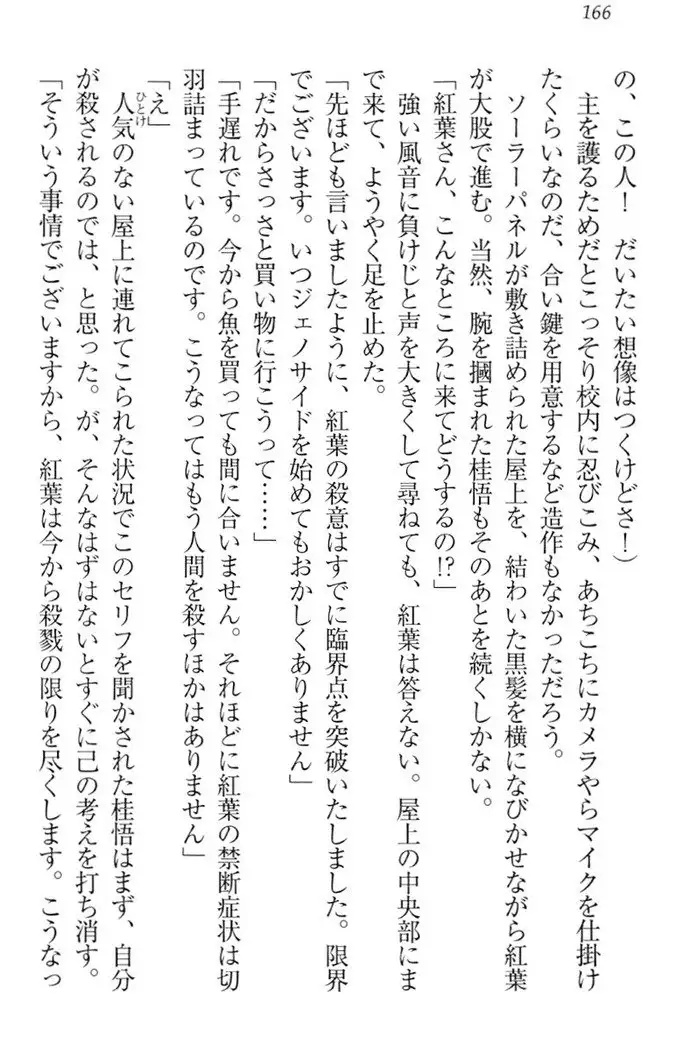 166
の、この人!　だいたい想像はつくけどさ!）
　主を護るためだとこっそり校内に忍びこみ、あちこちにカメラやらマイクを仕掛け
たくらいなのだ、合い鍵を用意するなど造作もなかっただろう。
　ソーラーパネルが敷き詰められた屋上を、結わいた黒髪を横になびかせながら紅葉
が大股で進む。当然、腕を掴まれた桂悟もそのあとを続くしかない。
「紅葉さん、こんなところに来てどうするの!?」
　強い風音に負けじと声を大きくして尋ねても、紅葉は答えない。屋上の中央部にま
で来て、ようやく足を止めた。
「先ほども言いましたように、紅葉の殺意はすでに臨界点を突破いたしました。限界
でございます。いつジェノサイドを始めてもおかしくありません」
「だからさっさと買い物に行こうって……」
「手遅れです。今から魚を買っても間に合いません。それほどに紅葉の禁断症状は切
羽詰まっているのです。こうなってはもう人間を殺すほかはありません」
「え」
　人気のない屋上に連れてこられた状況でこのセリフを聞かされた桂悟はまず、自分
ひとけ
が殺されるのでは、と思った。が、そんなはずはないとすぐに己の考えを打ち消す。
「そういう事情でございますから、紅葉は今から殺戮の限りを尽くします。こうなっ